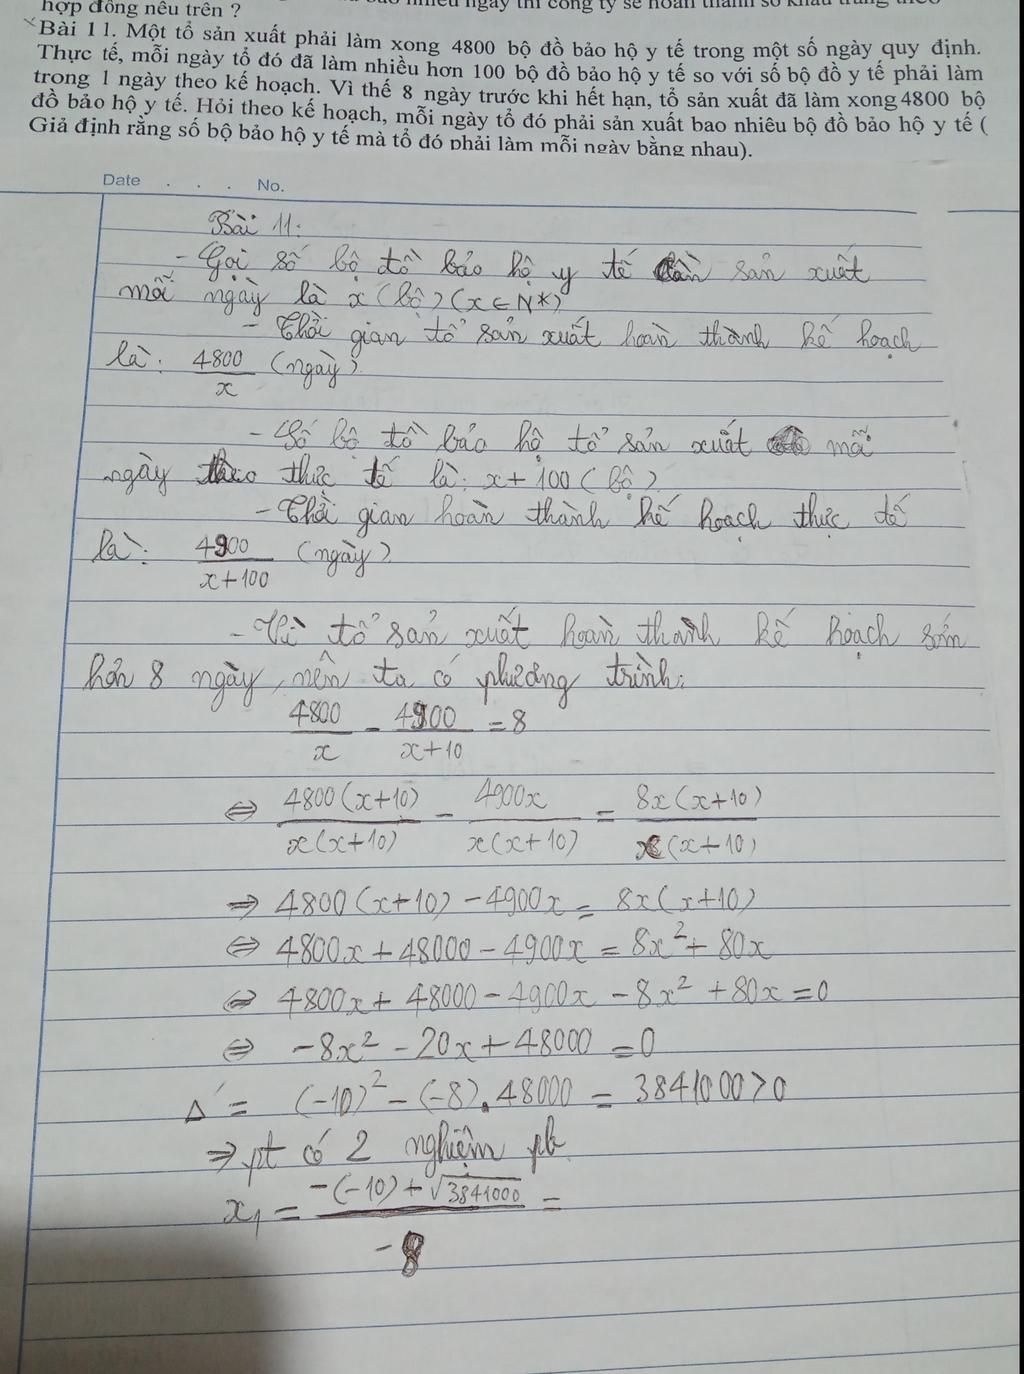 hợp đồng nêu trên ?
Bài 11. Một tổ sản xuất phải làm xong 4800 bộ đồ bảo hộ y tế trong một số ngày quy định.
Thực tế, mỗi ngày tổ đó đã làm nhiều hơn 100 bộ đồ bảo hộ y tế so với số bộ đồ y tế phải làm
trong 1 ngày theo kế hoạch. Vì thế 8 ngày trước khi hết hạn, tổ sản xuất đã làm xong 4800 bộ
đồ bảo hộ y tế. Hỏi theo kế hoạch, mỗi ngày tổ đó phải sản xuất bao nhiêu bộ đồ bảo hộ y tế (
Giả định rằng số bộ bảo hộ y tế mà tổ đó phải làm mỗi ngày bằng nhau).
Date . . . No.
Bài 11:
- Gọi số bộ đồ bảo hộ y tế cần sản xuất
mỗi ngày là x (bộ) (x ∈ N*)
- Thời gian tổ sản xuất hoàn thành kế hoạch
là: 4800/x (ngày)
- Số bộ đồ bảo hộ tổ sản xuất mỗi
ngày theo thực tế là: x + 100 (bộ)
- Thời gian hoàn thành kế hoạch thực tế
là: 4900/(x+100) (ngày)
- Vì tổ sản xuất hoàn thành kế hoạch sớm
hơn 8 ngày, nên ta có phương trình:
4800/x - 4900/(x+10) = 8
⇔ 4800(x+10)/x(x+10) - 4900x/x(x+10) = 8x(x+10)/x(x+10)
⇒ 4800(x+10) - 4900x = 8x(x+10)
⇔ 4800x + 48000 - 4900x = 8x² + 80x
⇔ 4800x + 48000 - 4900x - 8x² + 80x = 0
⇔ -8x² - 20x + 48000 = 0
Δ' = (-10)² - (-8).48000 = 3841000 > 0
⇒ pt có 2 nghiệm pb
x₁ = (-(-10) + √3841000)/-8 =